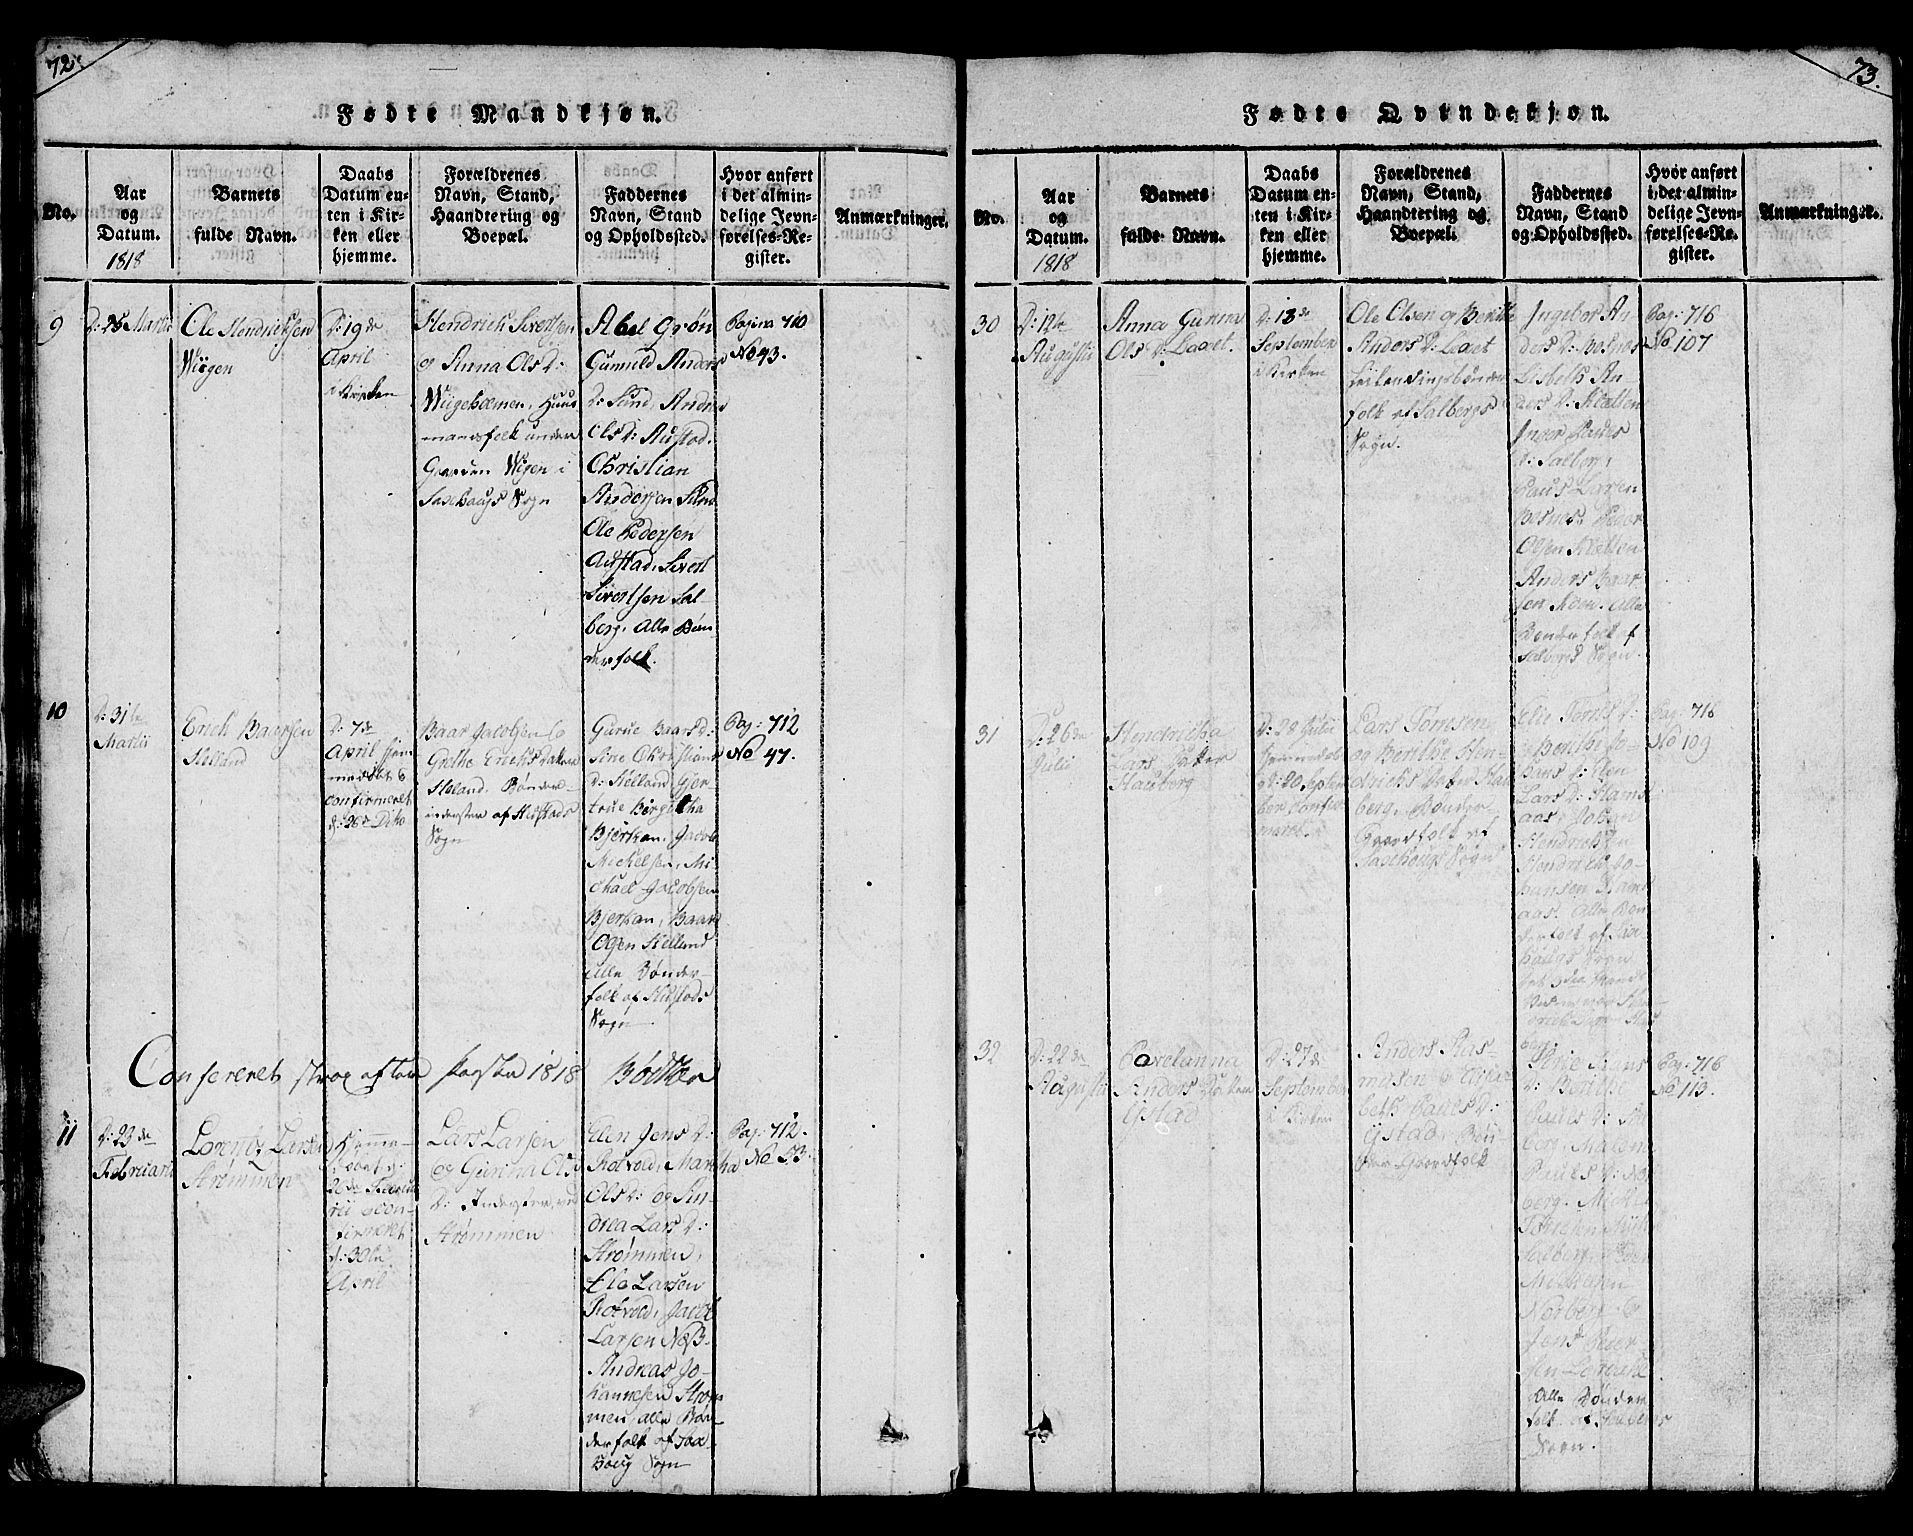 72.
Fødte Mandkjøn.
No.
Aar
og
Datum.
1818
Barnets
fulde Navn.
Daabs
Datum en-
ten i Kir-
ken eller
hjemme.
Forældrenes
Navn, Stand,
Haandtering og
Boepæl.
Faddernes
Navn, Stand
og Opholdssted.
Hvor anført
i det almin-
delige Jevn-
førelses-Re-
gister.
Anmærkninger.
9
D: 25 Martii
Ole Hendrichsen
Wiigen
D: 19de
April
i Kirken
Hendrich Sivertsen
og Anna Ols D:
Wiigehæmen, Huus
mandsfolk under
Gaarden Wigen i
Saxehaugs Sogn
Abel Grøn
Gunnild Anders
D: Sund, Andrea
Ols D: Austad.
Christian
Andersen Sund
Ole Pedersen
Austad, Sivert
Sivertsen Sal-
berg. Alle Bøn
derfolk.
Pagina 710
No 43.
10
D: 31te
Martii
Erich Baarsen
Helland
D: 7de
April hjem
medøbt &
confirmeret
d: 26de Dito
Baar Jacobsen &
Grethe Erichs Datter
Heland. Bønder-
inderster af Hustads
Sogn
Gurue Baars D:
Sine Christians
D: Helland Gjer-
true Birgitha
Bjerkan, Jacob
Michelsen, Mi-
chael Jacobsen
Bjerkan, Baard
Olsen Helland
alle Bønder-
folk af Hustads
Sogn
Pag: 712
No 47.
Confereret strax efter Paasken 1818 Bødtker
11
D: 23de
Februarii
Lorentz Larsen
Strømmen
Hjemme-
døbt d:
26de Februa
rii & con-
firmeret
d: 30te
April
Lars Larsen
og Gunna Ols
D: Indersten ved
Strømmen
Elen Jens D:
Rotvold, Maretha
Ols D: og An-
drea Lars D:
Strømmen,
Ole Larsen
Rotvold, Jacob
Larsen Næss-
Andreas Jo-
hannesen Strøm
men, alle Bøn-
derfolk af Sax-
houg Sogn
Pag: 712.
No 53.
73.
Fødte Qvindekjøn.
No.
Aar
og
Datum.
1818
Barnets
fulde Navn.
Daabs
Datum en-
ten i Kir-
ken eller
hjemme.
Forældrenes
Navn, Stand,
Haandtering og
Boepæl.
Faddernes
Navn, Stand
og Opholdssted.
Hvor anført
i det almin-
delige Jevn-
førelses-Re-
gister.
Anmærkninger.
30
D: 12te
Augustii
Anna Gunna
Ols D: Laaet.
D: 13de
September
i Kirken
Ole Olsen og Berithe
Anders D: Laaet
Leilendingsbønder
folk af Salbergs
Sogn.
Ingebor An
ders D: Bosnæs
Lisbeth An
ders D: Kletten
Inger Paules
D: Salberg
Paus Larsen
Bosnæs, Peder
Olsen Kletten
Anders Baar
sen Moen. Alle
Bønderfolk af
Salbergs Sogn.
Pag: 716
No 107
31
D: 26de
Julii
Hendricha
Lars Datter
Hauberg
D: 28 Julii
hjemmedøbt
& d: 20 Septem
ber confir
meret.
Lars Tømesen
og Berithe Hen-
drichs Datter Hau
berg, Bønder
Gaardfolk af
Saxehougs Sogn
D:
Berithe Jo-
Lars D: Hams
aas. Johan
Hendrichsen
Hendrich Jo-
hansen Hams
aas. Alle Bøn
derfolk af Sax
haugs Sogn
Pag: 716
No 109
32
D: 22de
Augustii
Parelanna
Anders Datter
Ystad
D: 27de
September
i Kirken
Anders Ras-
musen & Elisa-
beth Paules D:
Ystad, Bøn-
der Gaardfolk
Hans
D: Berithe
Paules D:
berg, Malena
Paules D: No
berg.
Salberg,
Norberg &
Jens Peder
sen
Alle Bønder
folk af Salbergs
Sogn.
Pag: 716
No 113.